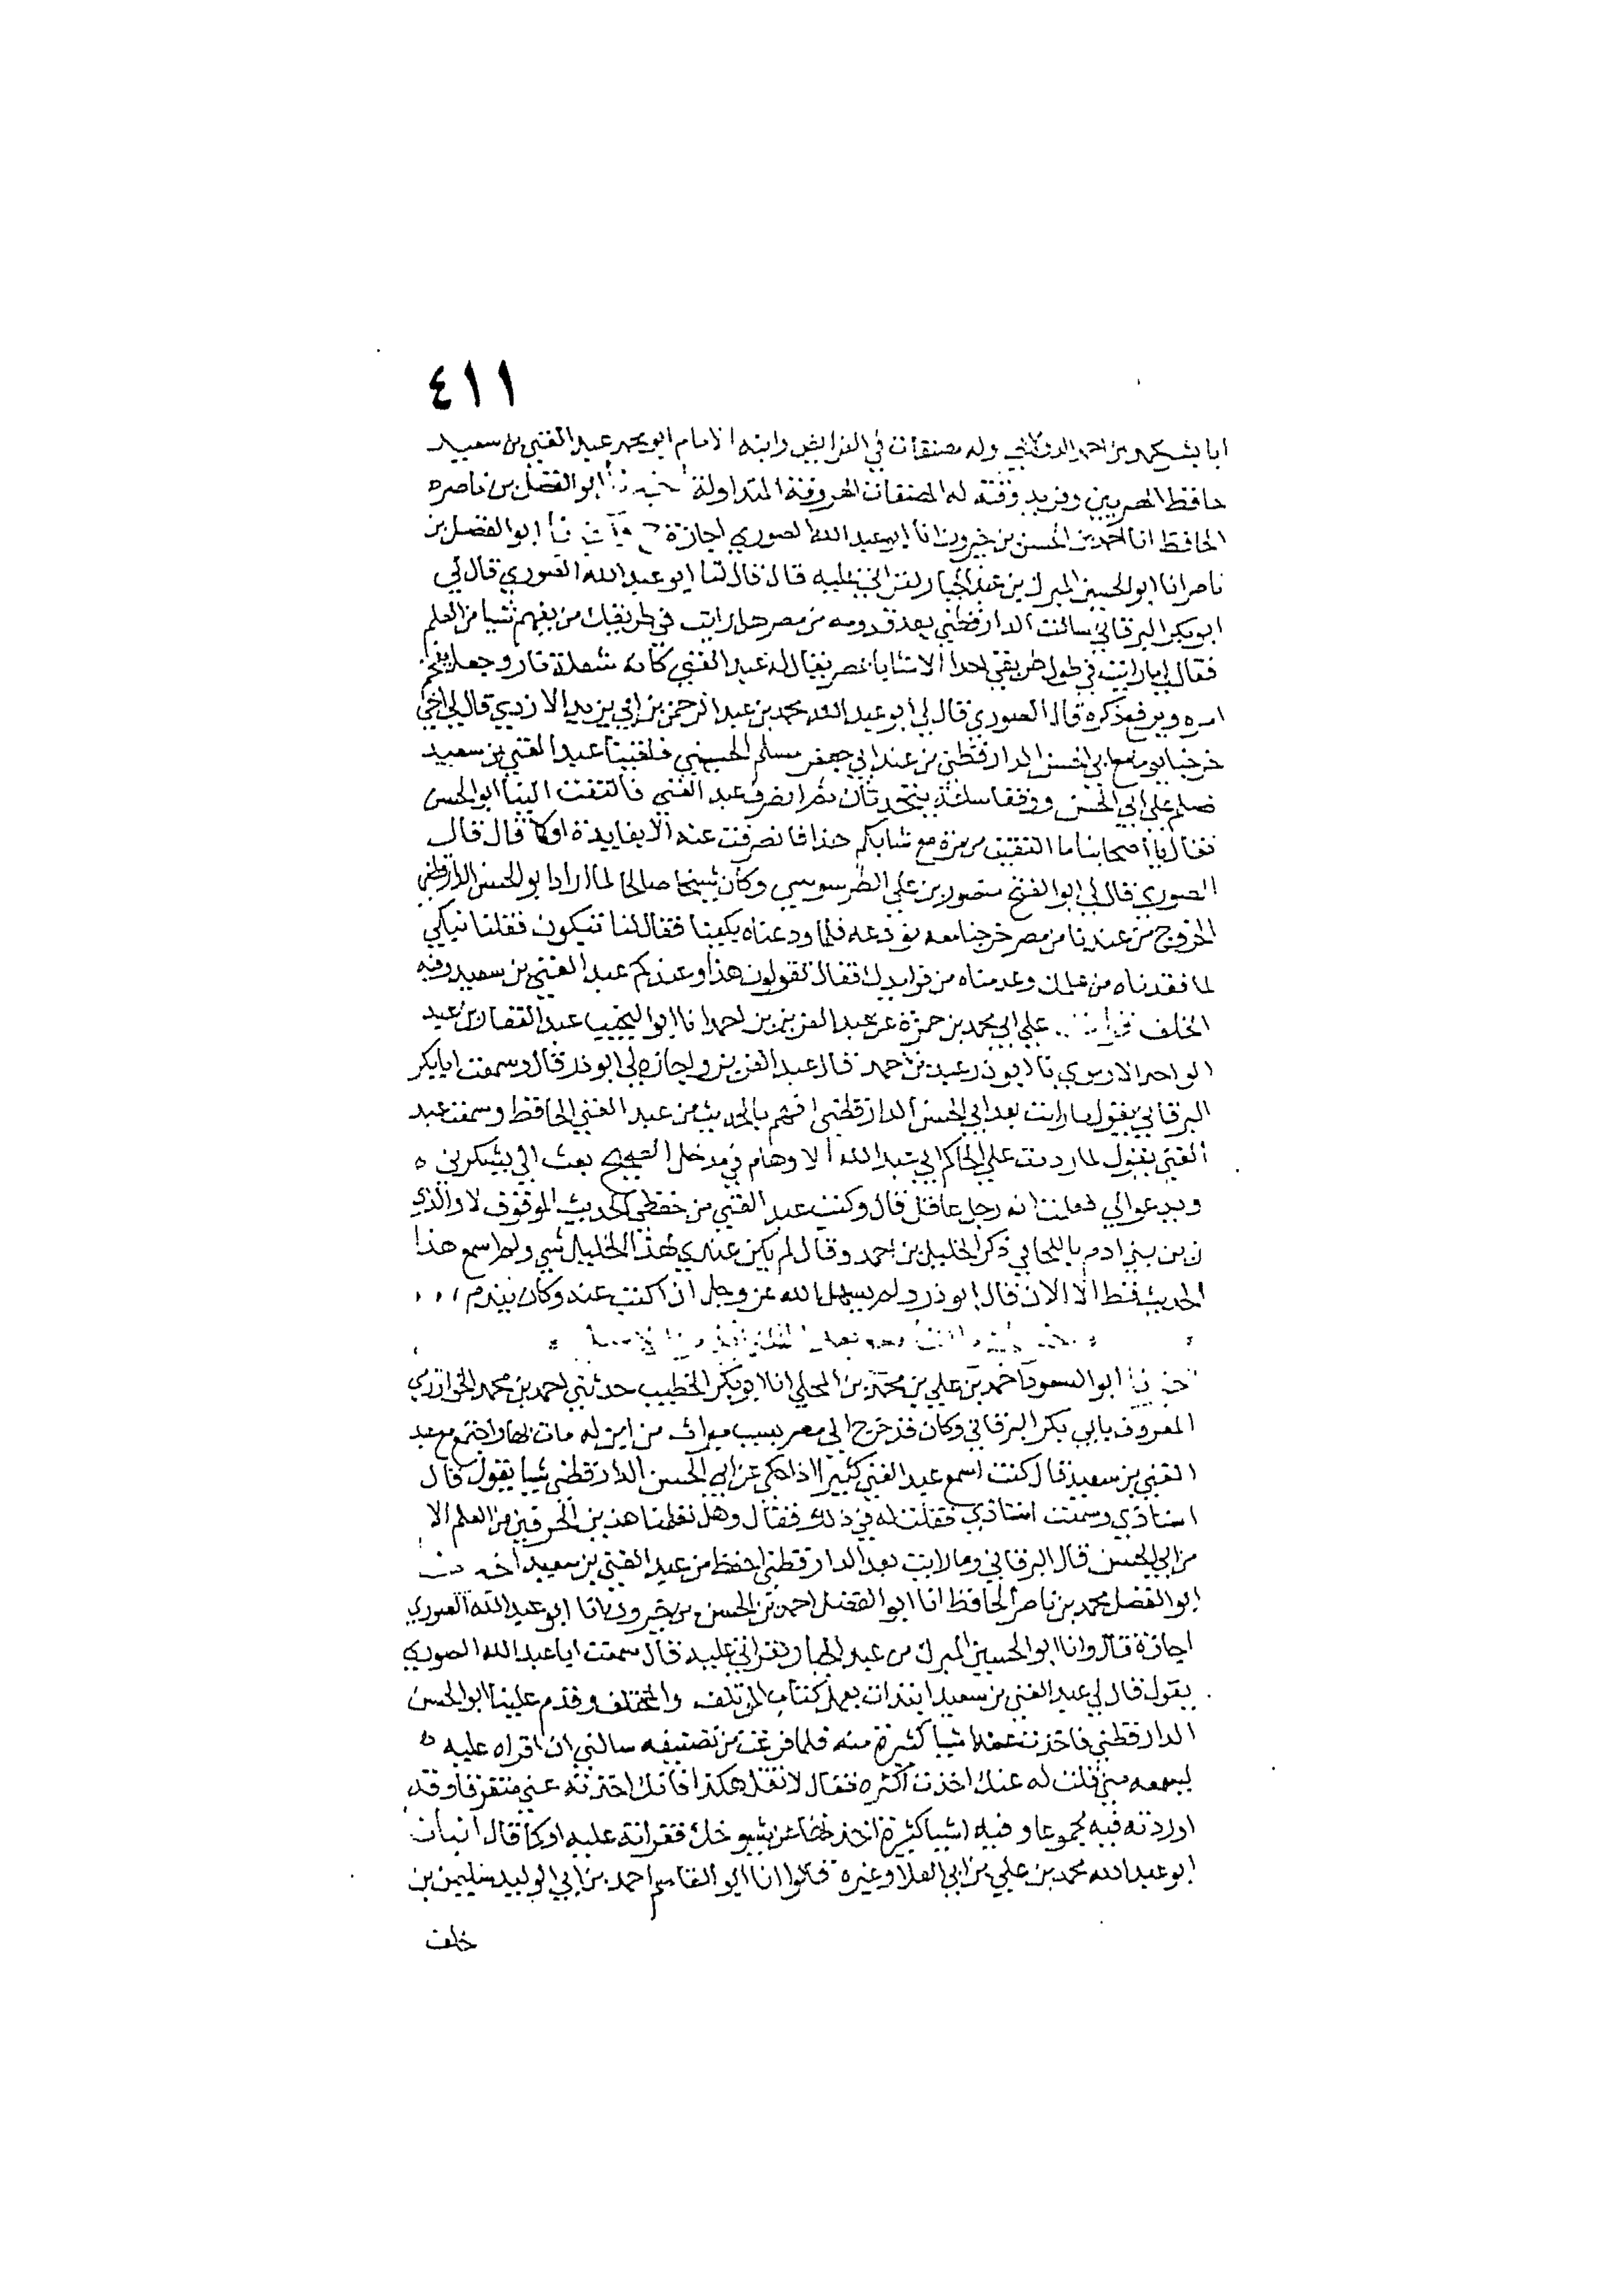 ٤١١
ابا بشر محمد بن احمد الدولابي وله مصنفات في الفرايض وابنه الامام ابو محمد عبد الغني بن سعيد
حافظ المصريين وفريد وقته له المصنفات المعروفة المتداولة اخبرنا ابو الفضل بن ناصر
الحافظ انا احمد بن الحسن بن خيرون انا ابو عبد الله الصوري اجازة ح ابو الفضل بن
ناصر انا ابو الحسين المبرك بن عبد الجبار بقراتي عليه قال قال لنا ابو عبد الله الصوري قال لي
ابو بكر البرقاني سالت الدارقطني بعد قدومه من مصر هل رايت في طريقك من يفهم شيا من العلم
فقال لي ما رايت في طول طريقي احدا الا شابا بمصر يقال له عبد الغني كانه شعلة نار وجعل يفخم
امره ويرفع ذكره قال الصوري قال لي ابو عبد الله محمد بن عبد الرحمن بن ابي يزيد الازدي قال لي اخي
خرجنا يوما مع ابي الحسن الدارقطني من عند ابي جعفر مسلم الحسيني فلقينا عبد الغني بن سعيد
فسلم على ابي الحسن ووقفا ساعة يتحدثان ثم انصرف عبد الغني فالتفت الينا ابو الحسن
فقال يا اصحابنا ما التقيت من مرة مع شابكم هذا فانصرفت عنه الا بفايدة او كما قال قال
الصوري قال لي ابو الفتح منصور بن علي الطرسوسي وكان شيخا صالحا لما اراد ابو الحسن الدارقطني
الخروج من عندنا من مصر خرجنا معه نودعه فلما ودعناه بكينا فقال لنا تبكون فقلنا نبكي
لما فقدناه من علمك وعدمناه من فوايدك فقال تقولون هذا وعندكم عبد الغني بن سعيد وفيه
الخلف قرات علي ابي محمد بن حمزة عن عبد العزيز بن احمد انا ابو النجيب عبد الغفار بن عبد
الواحد الارموي نا ابو ذر عبد بن احمد قال عبد العزيز واجازه لي ابو ذر قال وسمعت ابا بكر
البرقاني يقول ما رايت بعد ابي الحسن الدارقطني افهم بالحديث من عبد الغني الحافظ وسمعت عبد
الغني يقول لما رددت علي الحاكم ابي عبد الله الاوهام في مدخل الصحيح بعث الي يشكرني
ويدعو الي فعلمت انه رجل عاقل قال وكتب عبد الغني من حفظي الحديث الموقوف لا والذي
زين بني ادم باللحا في ذكر الخليل بن احمد وقال لم يكن عندي لهذا الخليل شي ولم اسمع هذا
الحديث قط الا الان قال ابو ذر ولم يسهل الله عز وجل ان اكتب عنه وكان يندم
اخبرنا ابو السعود احمد بن علي بن محمد بن المجلي انا ابو بكر الخطيب حدثني احمد بن محمد الخوارزمي
المعروف بابي بكر البرقاني وكان قد خرج الى مصر بسبب ميراث من ابن له مات بها واجتمع مع عبد
الغني بن سعيد قال كنت اسمع عبد الغني كثيرا اذا حكى عن ابي الحسن الدارقطني شيا يقول قال
استاذي وسمعت استاذي فقلت له في ذلك فقال وهل تعلمنا هذين الحرفين من العلم الا
من ابي الحسن قال البرقاني وما رايت بعد الدارقطني احفظ من عبد الغني بن سعيد اخبرنا
ابو الفضل محمد بن ناصر الحافظ انا ابو الفضل احمد بن الحسن بن خيرون انا ابو عبد الله الصوري
اجازة قال وانا ابو الحسين المبرك بن عبد الجبار بقراتي عليه قال سمعت ابا عبد الله الصوري
يقول قال لي عبد الغني بن سعيد ابتدات بعمل كتاب المؤتلف والمختلف وقدم علينا ابو الحسن
الدارقطني فاخذت عنه اشيا كثيرة منه فلما فرغت من تصنيفه سالني ان اقراه عليه
ليسمعه مني فقلت له عنك اخذت اكثره فقال لا تقل هكذا فانك اخذته عني متفرقا وقد
اوردته فيه مجموعا وفيه اشيا كثيرة اخذتها عن شيوخك فقراته عليه او كما قال انبانا
ابو عبد الله محمد بن علي بن ابي العلا وغيره قالوا انا ابو القاسم احمد بن ابي الوليد سليمن بن
خلف